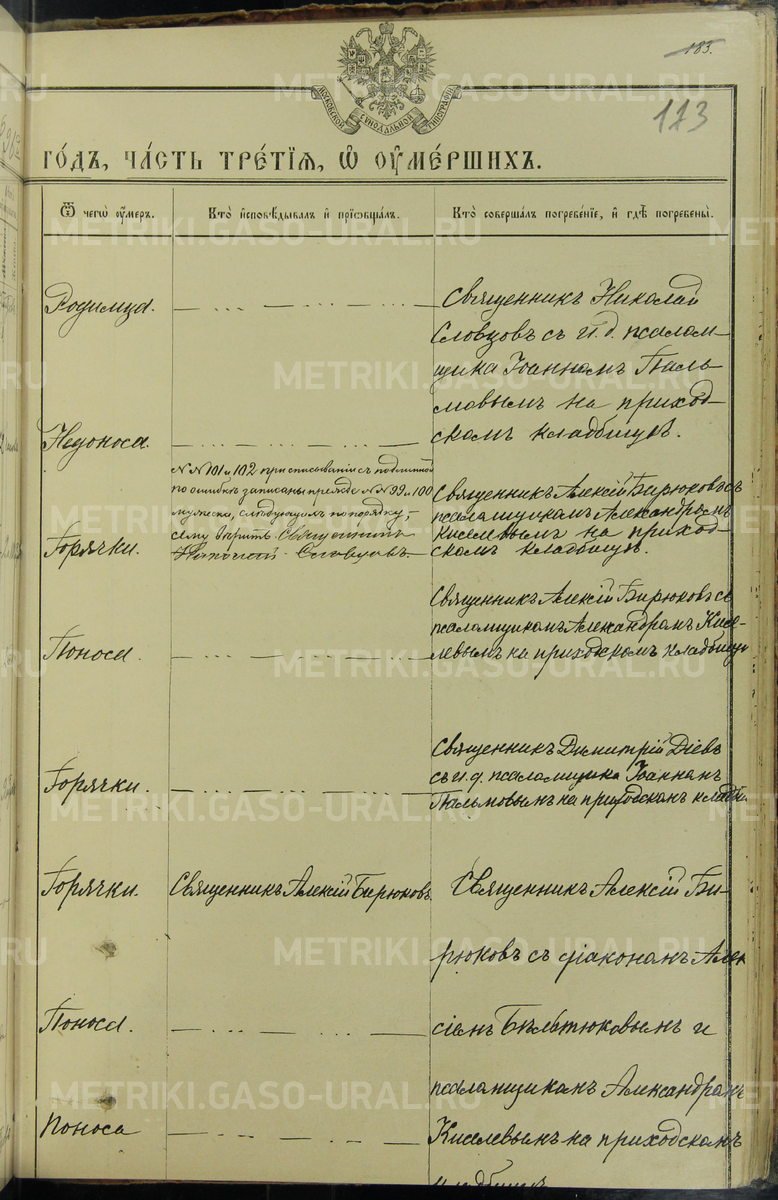 183.
173
МОСКОВСКОЙ СѴНОДАЛЬНОЙ ТИПОГРАФІИ
ГО́ДЪ, ЧА́СТЬ ТРЕ́ТІѦ, Ѡ҆ ОУ҆МЕ́РШИХЪ.
Ѿ чегѡ̀ оу҆́меръ.
Кто̀ и҆сповѣ́дывалъ и҆ прїѡбща́лъ.
Кто̀ соверша́лъ погребе́нїе, и҆ гдѣ̀ погребены̀.
Родимца.
— ... — — ... —
Священникъ Николай
Словцовъ съ и.д. псалом-
щика Іоанномъ Паль-
мовымъ на приход-
скомъ кладбищѣ.
Недоноса.
— ... — — ... —
NN 101 и 102 при списываніи съ подлинной
по ошибкѣ записаны прежде NN 99 и 100
мужеска, слѣдующихъ по порядку, —
сему вѣрить. Священникъ
Николай Словцовъ.
Горячки.
Священникъ Алексій Бирюковъ съ
псаломщикомъ Александромъ
Киселевымъ на приход-
скомъ кладбищѣ.
Поноса.
— ... — — ... —
Священникъ Алексій Бирюковъ съ
псаломщикомъ Александромъ Кисе-
левымъ на приходскомъ кладбищѣ
Горячки.
— ... — — ... —
Священникъ Димитрій Діевъ
съ и.д. псаломщика Іоанномъ
Пальмовымъ на приходскомъ кладби
Горячки.
Священникъ Алексій Бирюковъ.
Священникъ Алексій Би-
рюковъ съ діакономъ Алек
Поноса.
— ... — — ... —
сіемъ Бѣльтюковымъ и
псаломщикомъ Александромъ
Поноса
— ... — — ... —
Киселевымъ на приходскомъ
кладбищѣ
METRIKI.GASO-URAL.RU